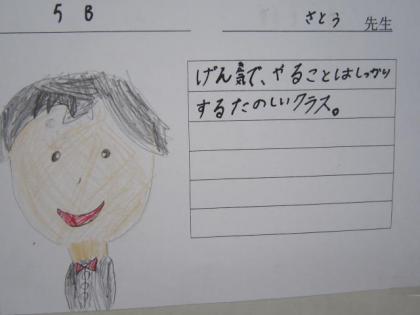 5 B
さとう 先生
げん気で、やることはしっかり
するたのしいクラス。